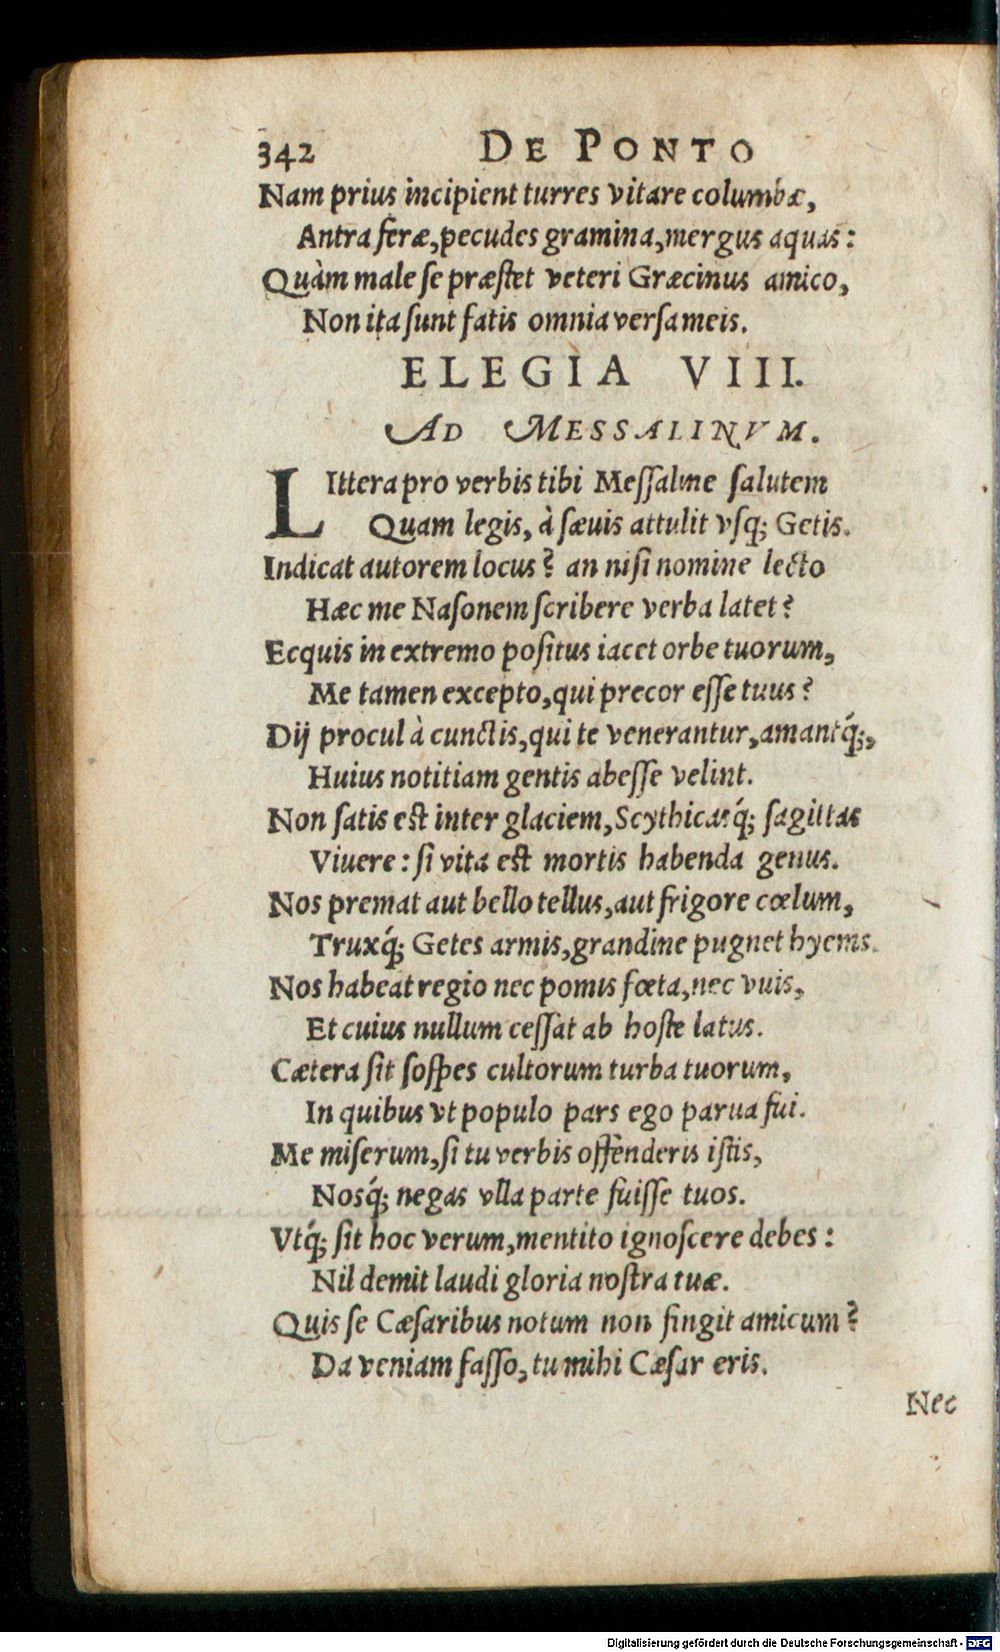 342 DE PONTO
Nam prius incipient turres vitare columbæ,
Antra feræ, pecudes gramina, mergus aquas:
Quàm male se præstet veteri Græcinus amico,
Non ita sunt fatis omnia versa meis.
ELEGIA VIII.
AD MESSALINVM.
LIttera pro verbis tibi Messaline salutem
Quam legis, à sæuis attulit vsq; Getis.
Indicat autorem locus? an nisi nomine lecto
Hæc me Nasonem scribere verba latet?
Ecquis in extremo positus iacet orbe tuorum,
Me tamen excepto, qui precor esse tuus?
Dij procul à cunctis, qui te venerantur, amantq́;,
Huius notitiam gentis abesse velint.
Non satis est inter glaciem, Scythicasq́; sagittas
Viuere: si vita est mortis habenda genus.
Nos premat aut bello tellus, aut frigore cœlum,
Truxq́; Getes armis, grandine pugnet hyems.
Nos habeat regio nec pomis fœta, nec vuis,
Et cuius nullum cessat ab hoste latus.
Cætera sit sospes cultorum turba tuorum,
In quibus vt populo pars ego parua fui.
Me miserum, si tu verbis offenderis istis,
Nosq́; negas vlla parte fuisse tuos.
Vtq́; sit hoc verum, mentito ignoscere debes:
Nil demit laudi gloria nostra tuæ.
Quis se Cæsaribus notum non fingit amicum?
Da veniam fasso, tu mihi Cæsar eris.
Nec
Digitalisierung gefördert durch die Deutsche Forschungsgemeinschaft - DFG